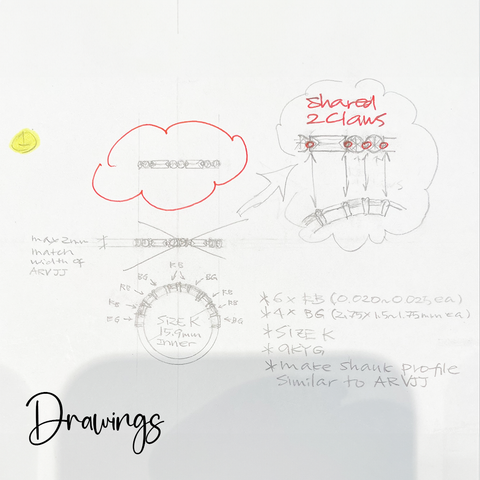 1
shared
2 claws
max 2mm
match
width of
ARVJJ
RB
BG
BG
RB
RB
RB
RB
BG
BG
SIZE K
15.9mm
inner
* 6 x RB (0.020~0.025ea)
* 4 x BG (2.75x1.5~1.75mm ea)
* SIZE K
* 9KYG
* make shank profile
similar to ARVJJ
Drawings